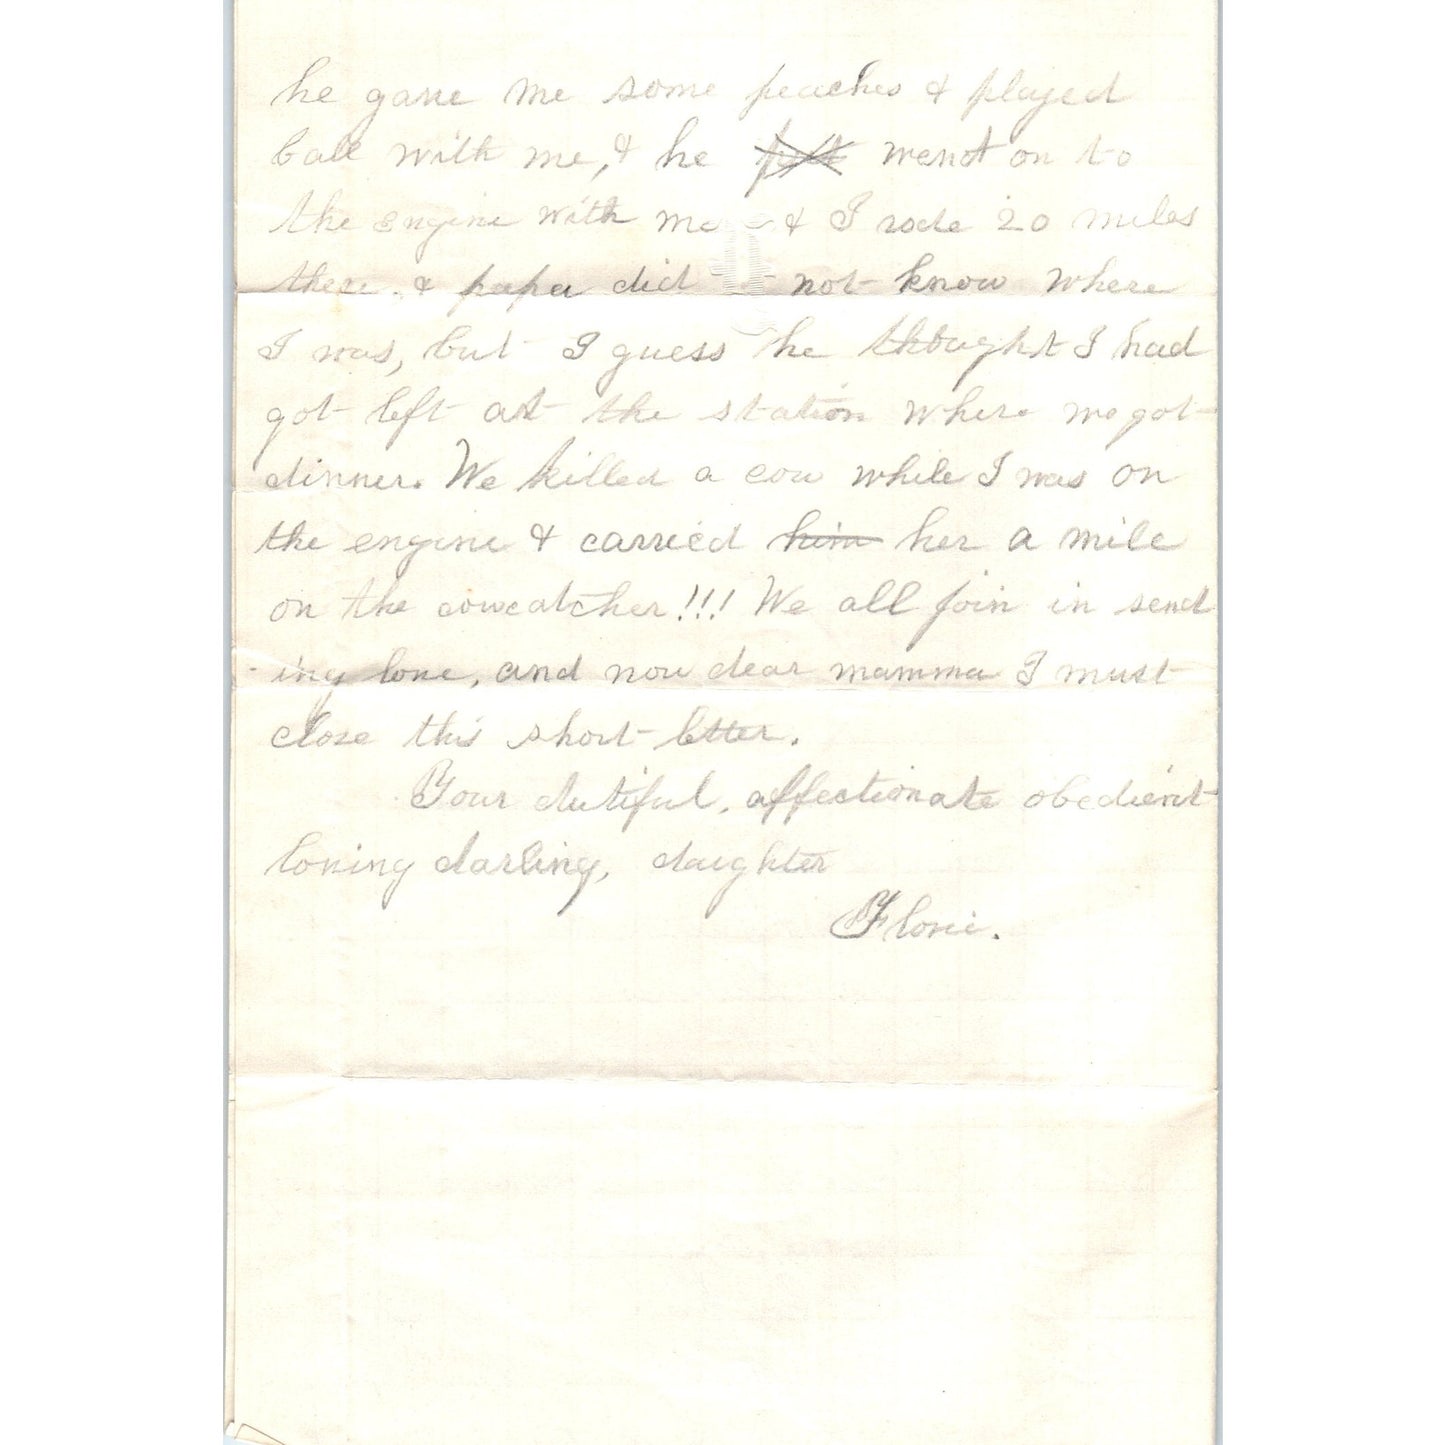 he gave me some peaches & played
ball with me, & he went on to
the engine with me & I rode 20 miles
there. & papa did not know where
I was, but I guess he thought I had
got left at the station where we got
dinner. We killed a cow while I was on
the engine & carried him her a mile
on the cowcatcher!!! We all join in send
-ing love, and now dear mamma I must
close this short letter.
Your dutiful, affectionate obedient
loving darling, daughter
Flovie.